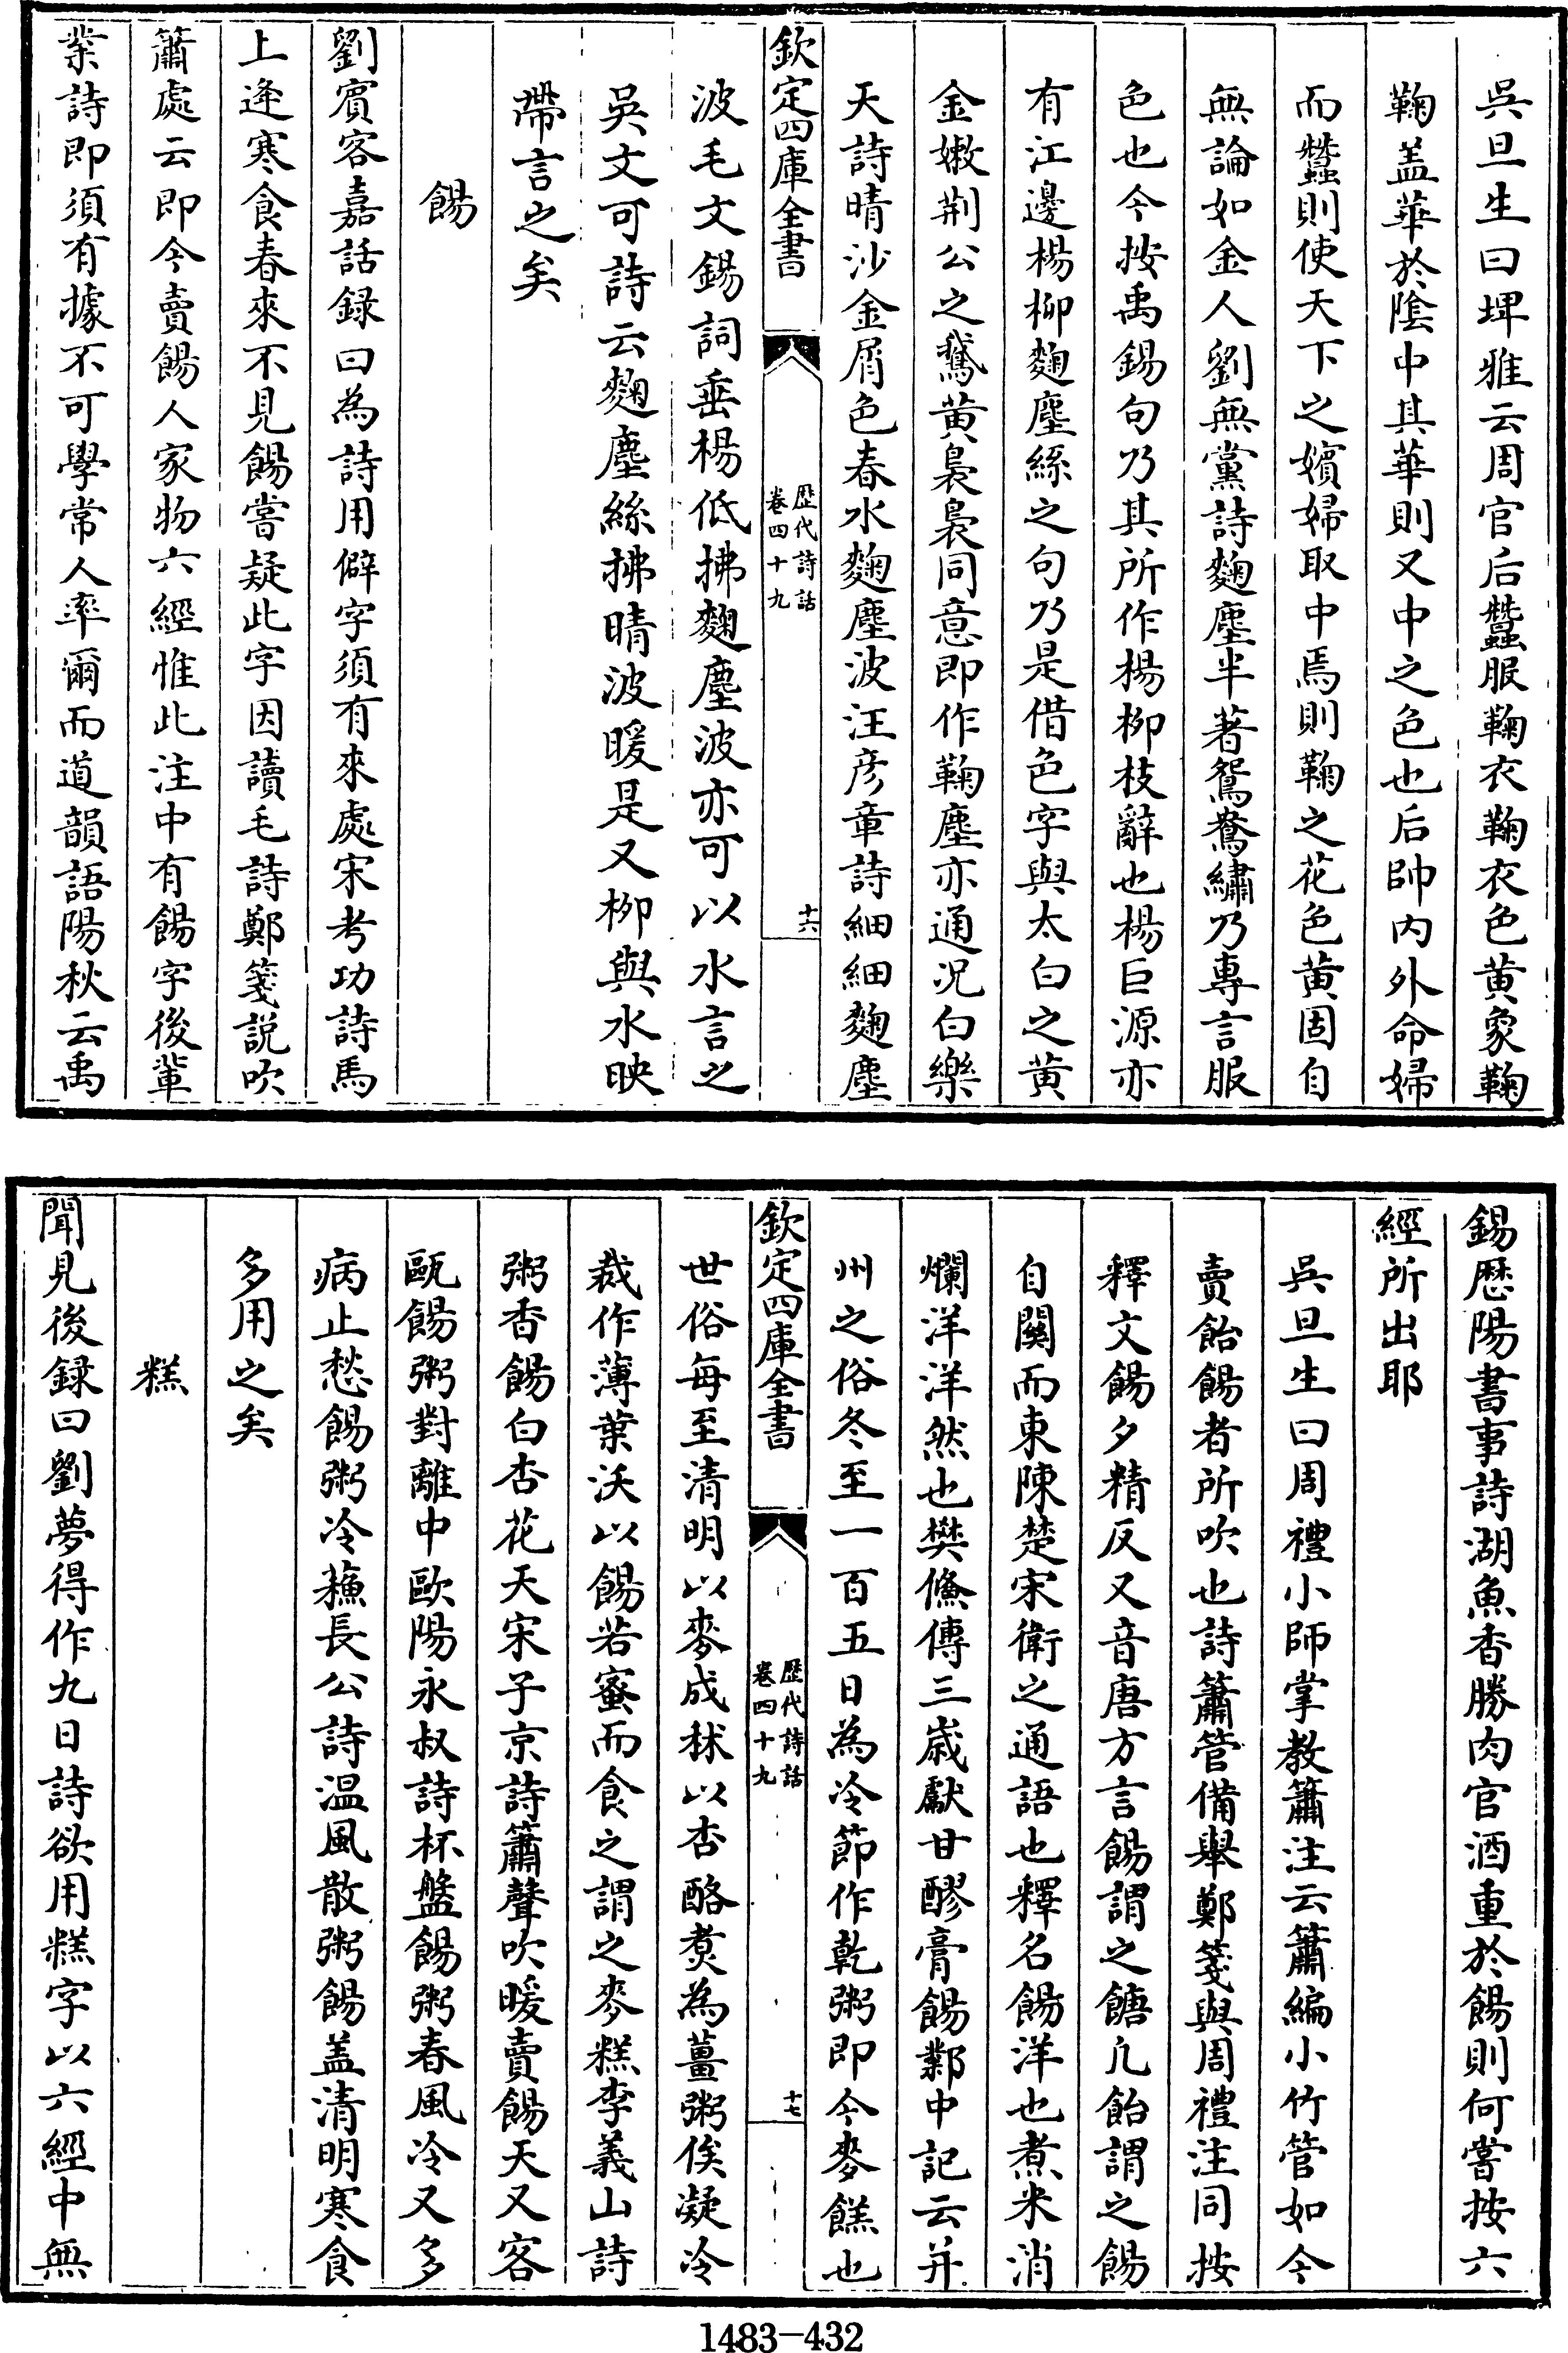 吳旦生曰埤雅云周官后蠶服鞠衣鞠衣色黄象鞠
鞠盖華於陰中其華則又中之色也后帥内外命婦
而蠶則使天下之嬪婦取中焉則鞠之花色黄固自
無論如金人劉無黨詩麴塵半著鴛鴦繡乃專言服
色也今按禹錫句乃其所作楊柳枝辭也楊巨源亦
有江邊楊柳麴塵絲之句乃是借色字與太白之黄
金嫩荆公之鵞黄裊裊同意即作鞠塵亦通况白樂
天詩晴沙金屑色春水麴塵波汪彦章詩細細麴塵
欽定四庫全書
歴代詩話
卷四十九
十六
波毛文錫詞垂楊低拂麴塵波亦可以水言之
吳文可詩云麴塵絲拂晴波暖是又柳與水映
帶言之矣
餳
劉賓客嘉話録曰為詩用僻字須有來處宋考功詩馬
上逢寒食春來不見餳嘗疑此字因讀毛詩鄭箋説吹
簫處云即今賣餳人家物六經惟此注中有餳字後輩
業詩即須有據不可學常人率爾而道韻語陽秋云禹
錫歴陽書事詩湖魚香勝肉官酒重於餳則何嘗按六
經所出耶
吳旦生曰周禮小師掌教簫注云簫編小竹管如今
賣飴餳者所吹也詩簫管備舉鄭箋與周禮注同按
釋文餳夕精反又音唐方言餳謂之餹凢飴謂之餳
自關而東陳楚宋衛之通語也釋名餳洋也煮米消
爛洋洋然也樊儵傳三歳獻甘醪膏餳鄴中記云并
州之俗冬至一百五日為冷節作乾粥即今麥餻也
欽定四庫全書
歴代詩話
卷四十九
十七
世俗每至清明以麥成秫以杏酪煑為薑粥俟凝冷
裁作薄葉沃以餳若蜜而食之謂之麥糕李義山詩
粥香餳白杏花天宋子京詩簫聲吹暖賣餳天又客
甌餳粥對離中歐陽永叔詩杯盤餳粥春風冷又多
病止愁餳粥冷蘓長公詩温風散粥餳盖清明寒食
多用之矣
糕
聞見後録曰劉夢得作九日詩欲用糕字以六經中無
1483-432